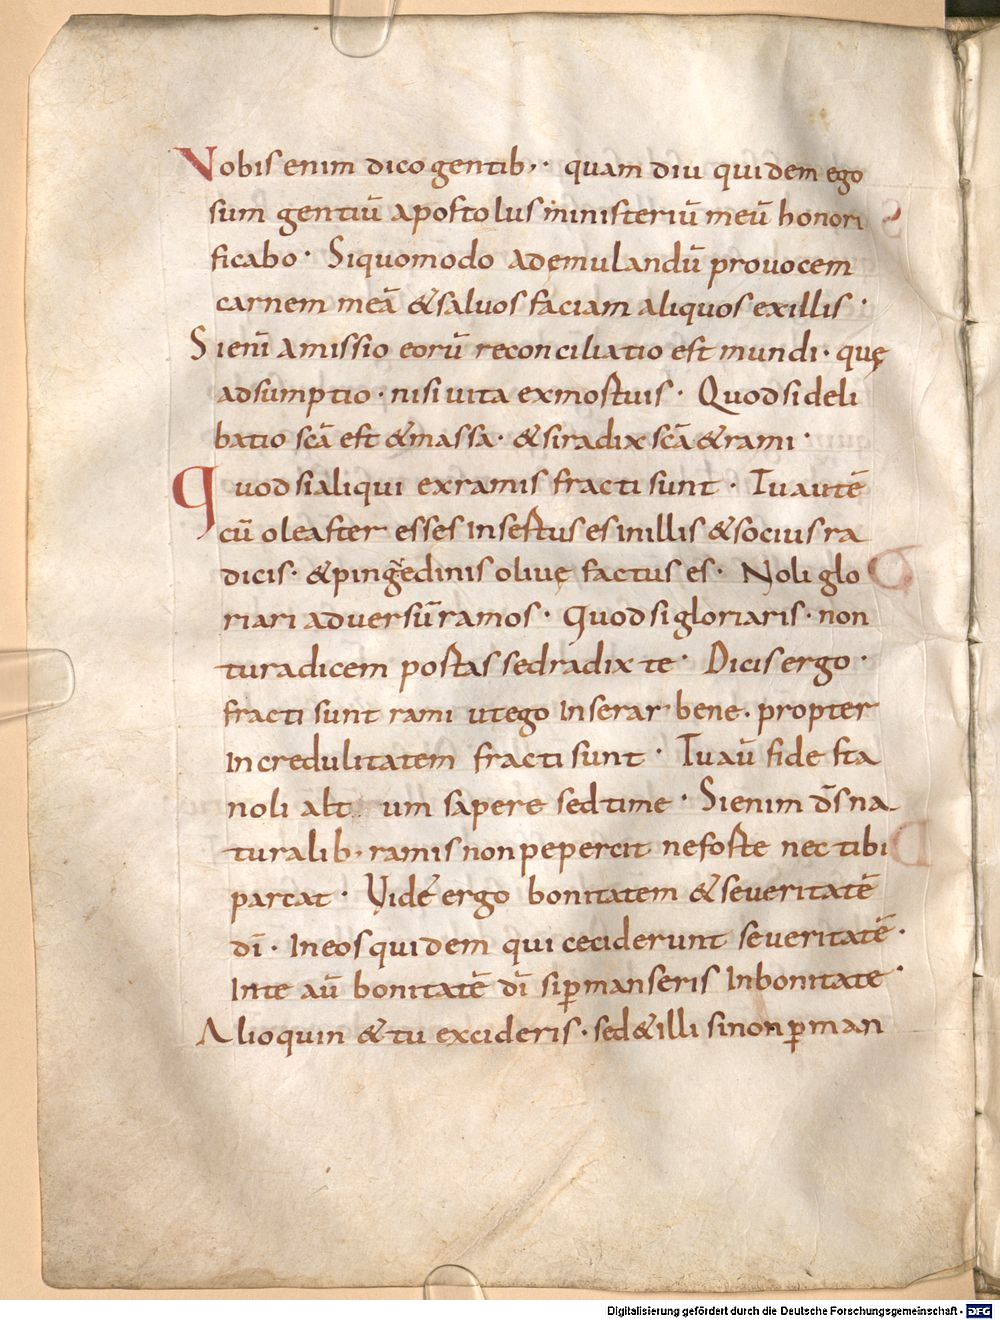 Vobis enim dico gentib;· quam diu quidem ego
sum gentiū apostolus ministeriū meū honori
ficabo· Siquomodo ad ęmulandū prouocem
carnem meā &saluos faciam aliquos exillis·
Si eni᷄ amissio eorū reconciliatio est mundi· quę
adsumptio· nisi uita exmortuis· Quodsi deli
batio sc̄a est &massa· &siradix sc̄a &rami·
Quod sialiqui exramis fracti sunt· Tu autē
cū oleaster esses insertus es inillis &socius ra
dicis· &pinguedinis oliuę factus es· Noli glo
riari aduersū ramos· Quod si gloriaris· non
tu radicem portas sed radix te· Dicis ergo·
fracti sunt rami ut ego inserar· bene· propter
Incredulitatem fracti sunt· Tu aū fide sta
noli alt um sapere sed time· Si enim d̄s na
turalib; ramis non pepercit ne forte nec tibi
parcat· Uide ergo bonitatem &seueritatē
dī· In eos quidem qui ceciderunt seueritatē·
Inte aū bonitatē dī si p̱manseris Inbonitate·
Alioquin &tu excideris· sed &illi sinon p̱man
Digitalisierung gefördert durch die Deutsche Forschungsgemeinschaft - DFG